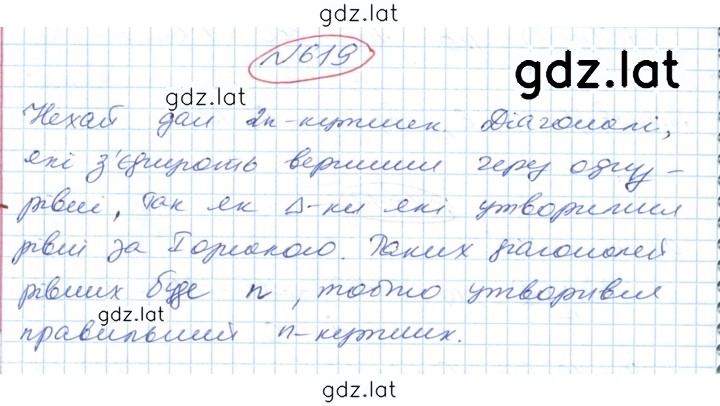 gdz.lat
№619
gdz.lat
gdz.lat
Нехай дан 2n-кутник. Діагоналі,
які з'єднують вершини через одну -
рівні, так як Δ-ки які утворились
рівні за І ознакою. Таких діагоналей
рівних буде n, тобто утворився
gdz.lat
правильний n-кутник.
gdz.lat
gdz.lat